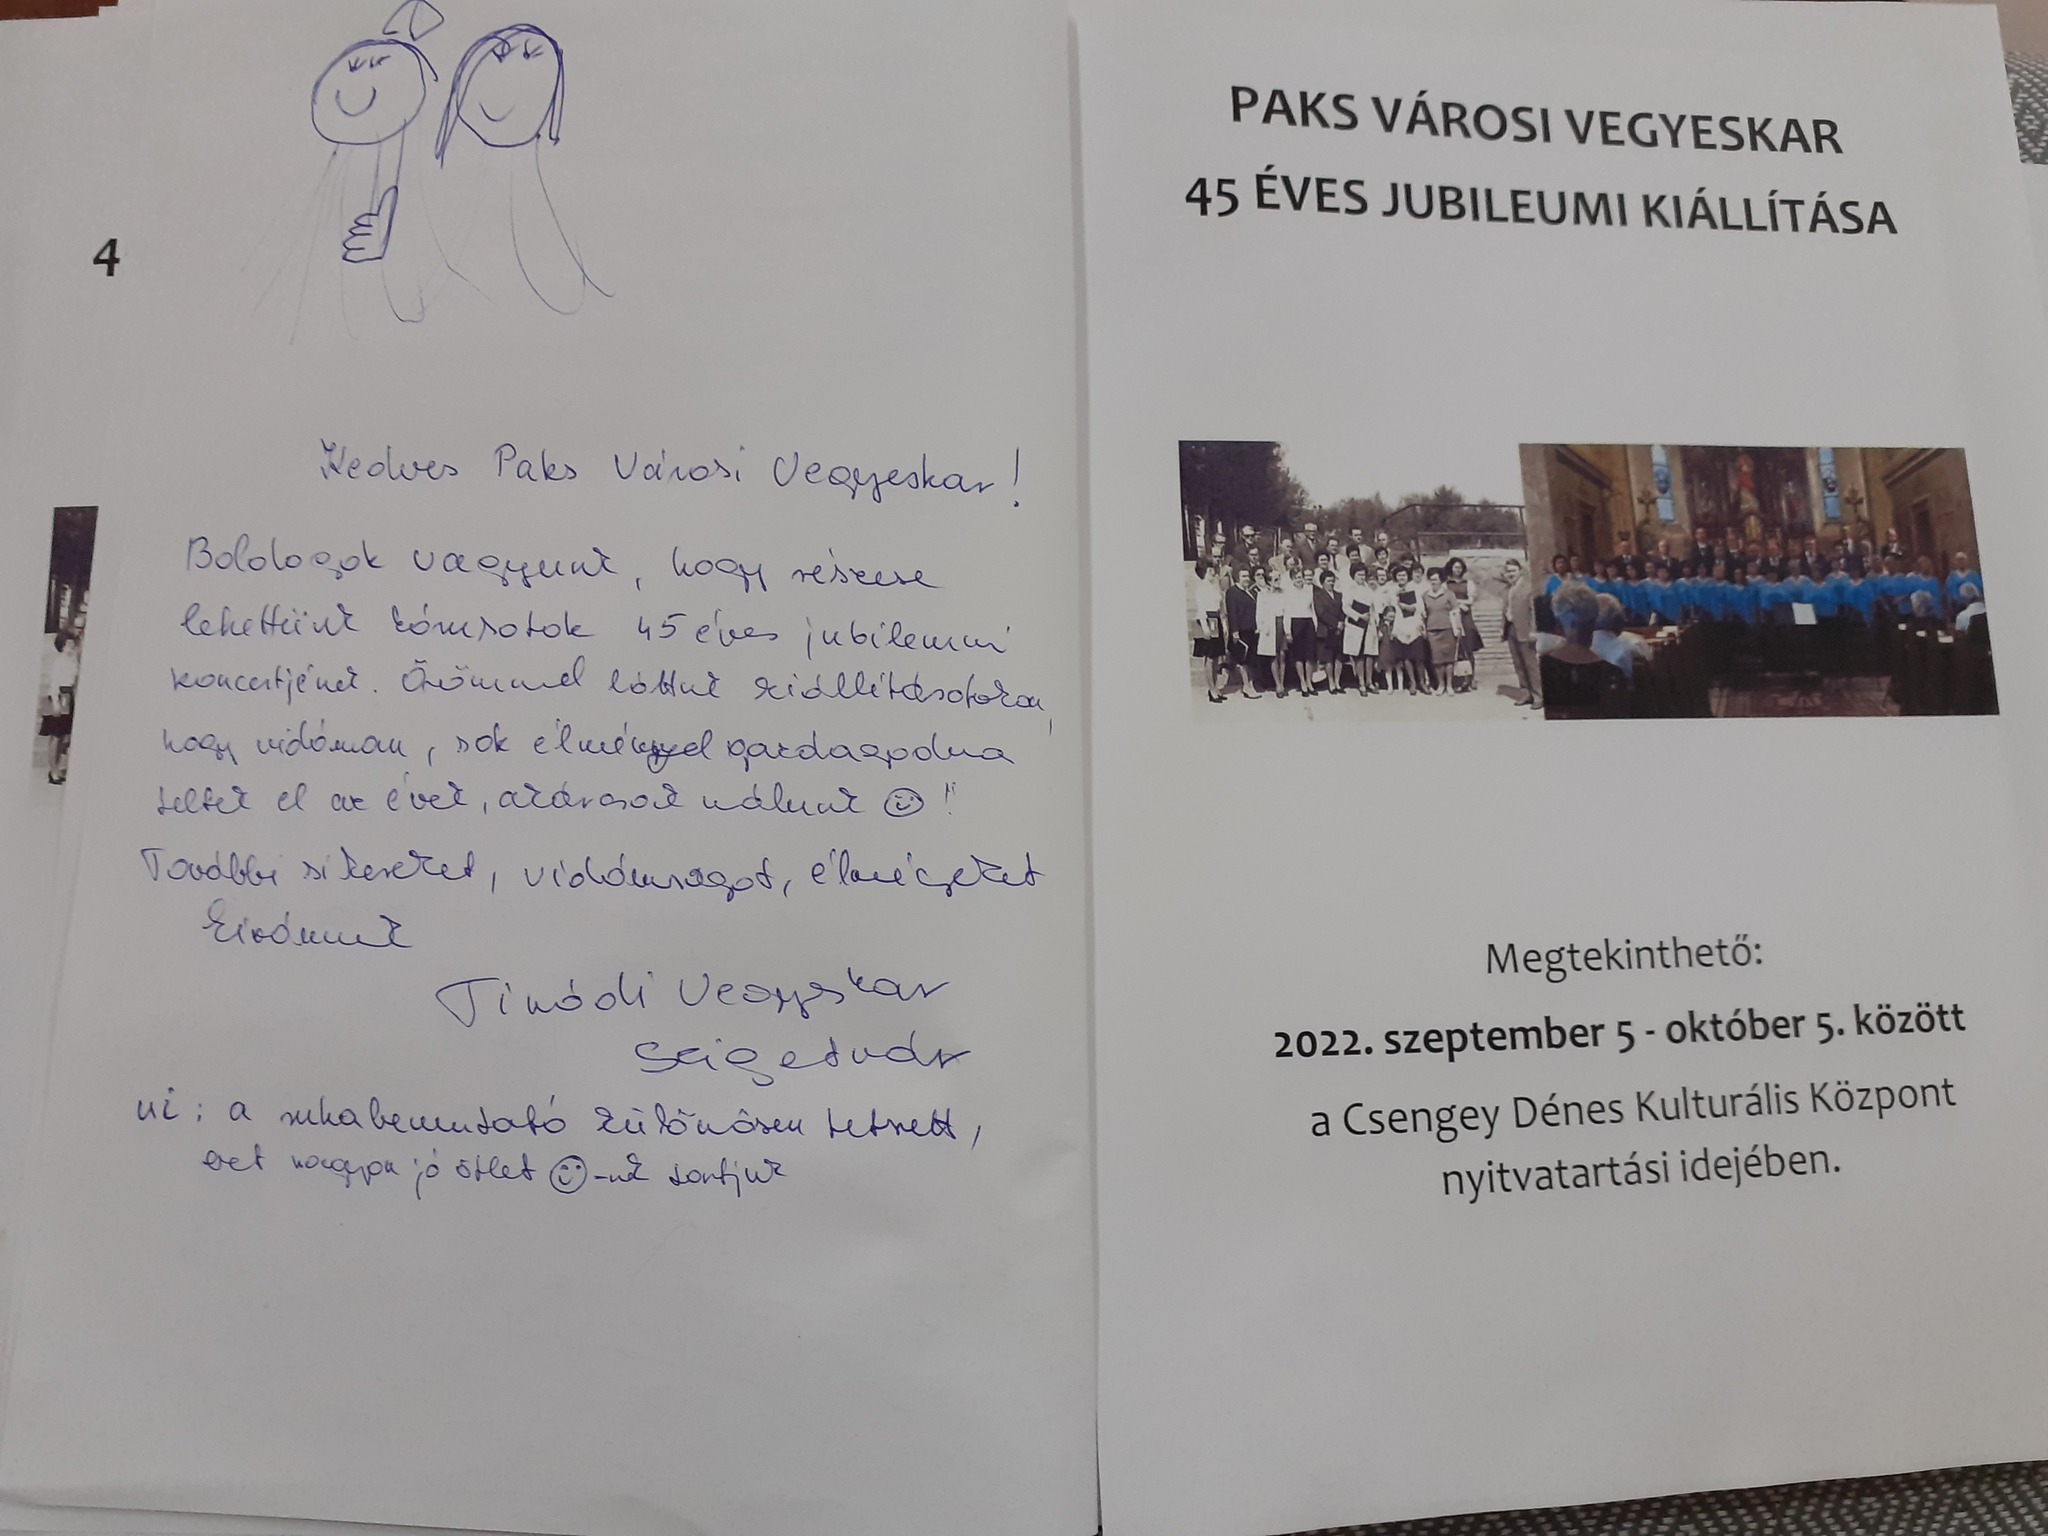 4
Kedves Paks Városi Vegyeskar!
Boldogok vagyunk, hogy részese
lehettünk kórusotok 45 éves jubileumi
koncertjének. Örömmel láttuk kiállításotokon,
hogy vidáman, sok élménnyel gazdagodva
teltek el az évek, akárcsak nálunk ☺!!
További sikereket, vidámságot, élményeket
kívánunk
Tinódi Vegyeskar
Szigetvár
ui: a ruhabemutató különösen tetszett,
ezt nagyon jó ötlet ☺-nk tartjuk
PAKS VÁROSI VEGYESKAR
45 ÉVES JUBILEUMI KIÁLLÍTÁSA
Megtekinthető:
2022. szeptember 5 - október 5. között
a Csengey Dénes Kulturális Központ
nyitvatartási idejében.